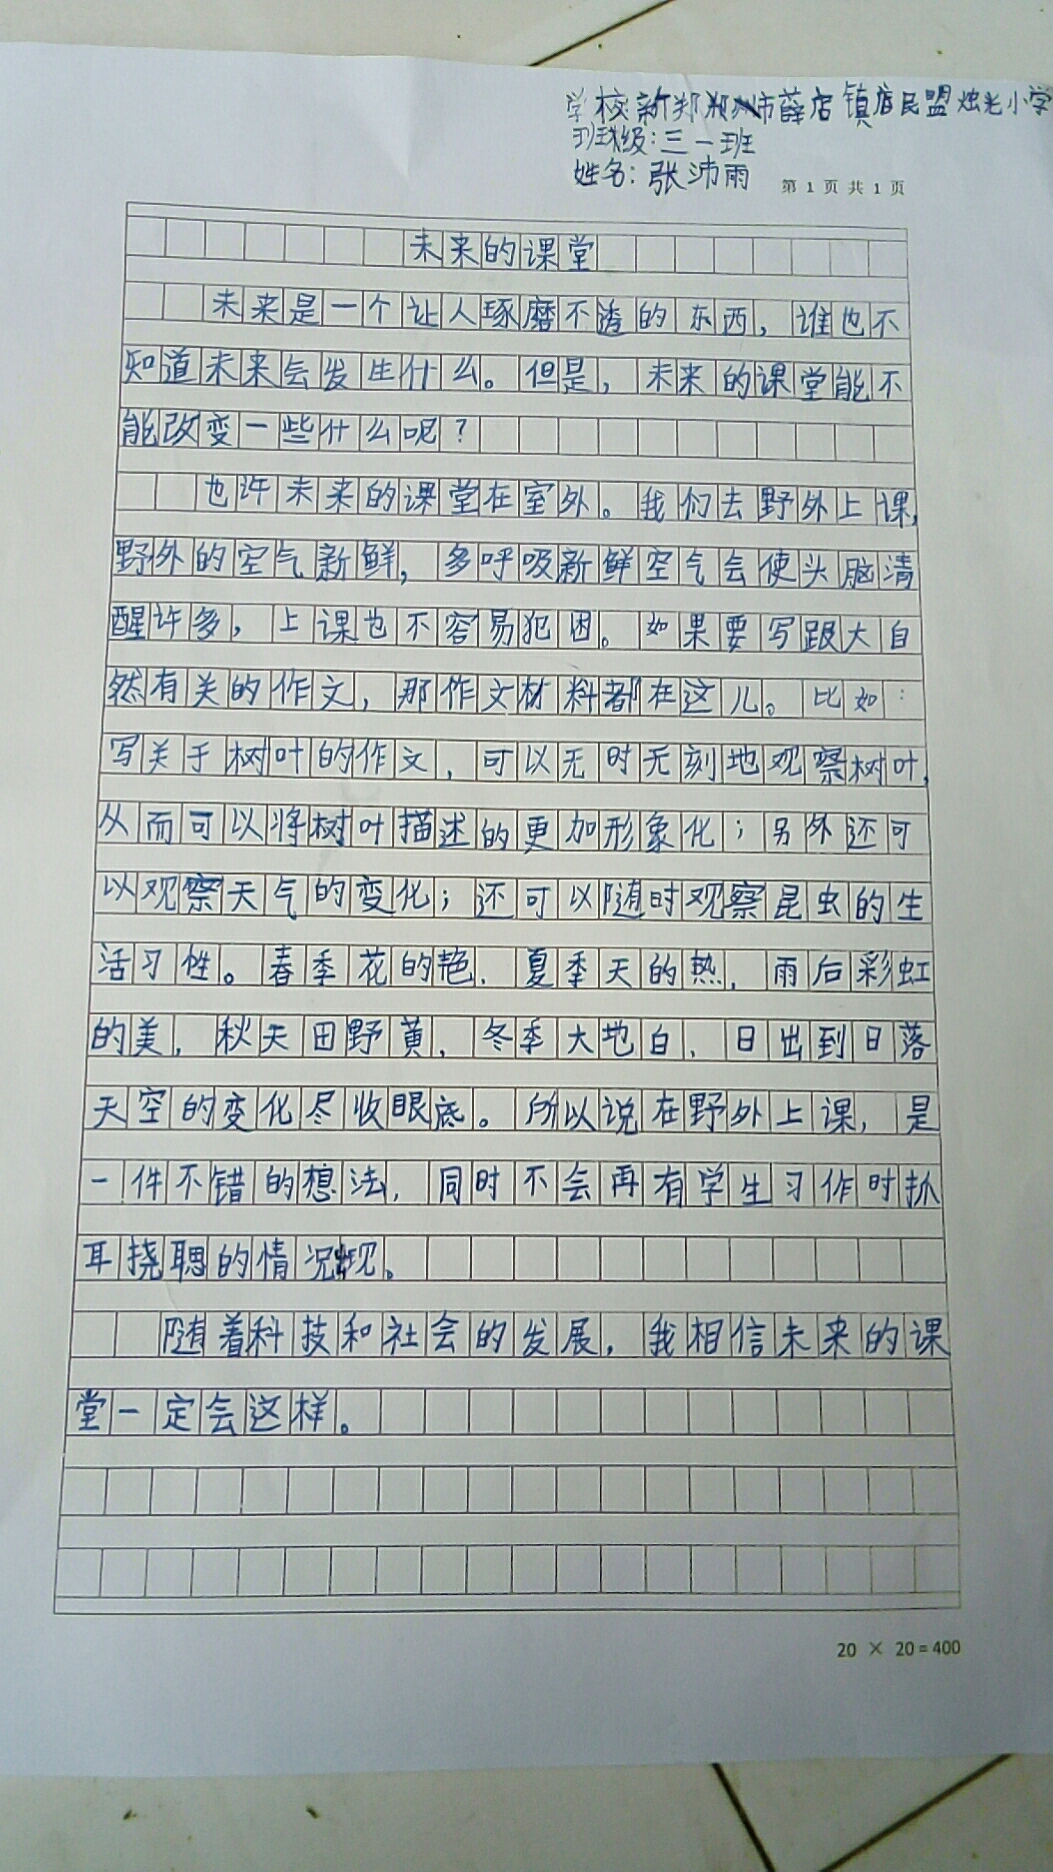 学校新郑市薛店镇店民盟烛光小学
班级：三一班
姓名：张沛雨
第 1 页 共 1 页
未来的课堂
未来是一个让人琢磨不透的东西，谁也不
知道未来会发生什么。但是，未来的课堂能不
能改变一些什么呢？
也许未来的课堂在室外。我们去野外上课，
野外的空气新鲜，多呼吸新鲜空气会使头脑清
醒许多，上课也不容易犯困。如果要写跟大自
然有关的作文，那作文材料都在这儿。比如：
写关于树叶的作文，可以无时无刻地观察树叶，
从而可以将树叶描述的更加形象化；另外还可
以观察天气的变化；还可以随时观察昆虫的生
活习性。春季花的艳，夏季天的热，雨后彩虹
的美，秋天田野黄，冬季大地白，日出到日落
天空的变化尽收眼底。所以说在野外上课，是
一件不错的想法，同时不会再有学生习作时抓
耳挠聪的情况出现。
随着科技和社会的发展，我相信未来的课
堂一定会这样。
20 × 20 = 400